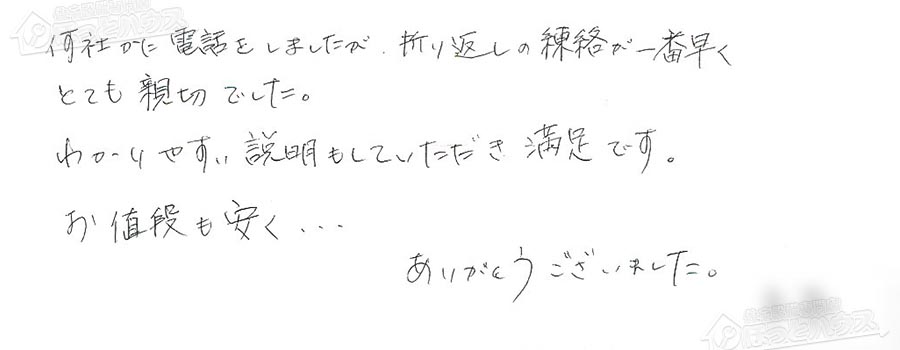 何社かに電話をしましたが、折り返しの練絡が一番早く
とても親切でした。
わかりやすい説明もしていただき満足です。
お値段も安く...
ありがとうございました。
ほっとハウス
ほっとハウス